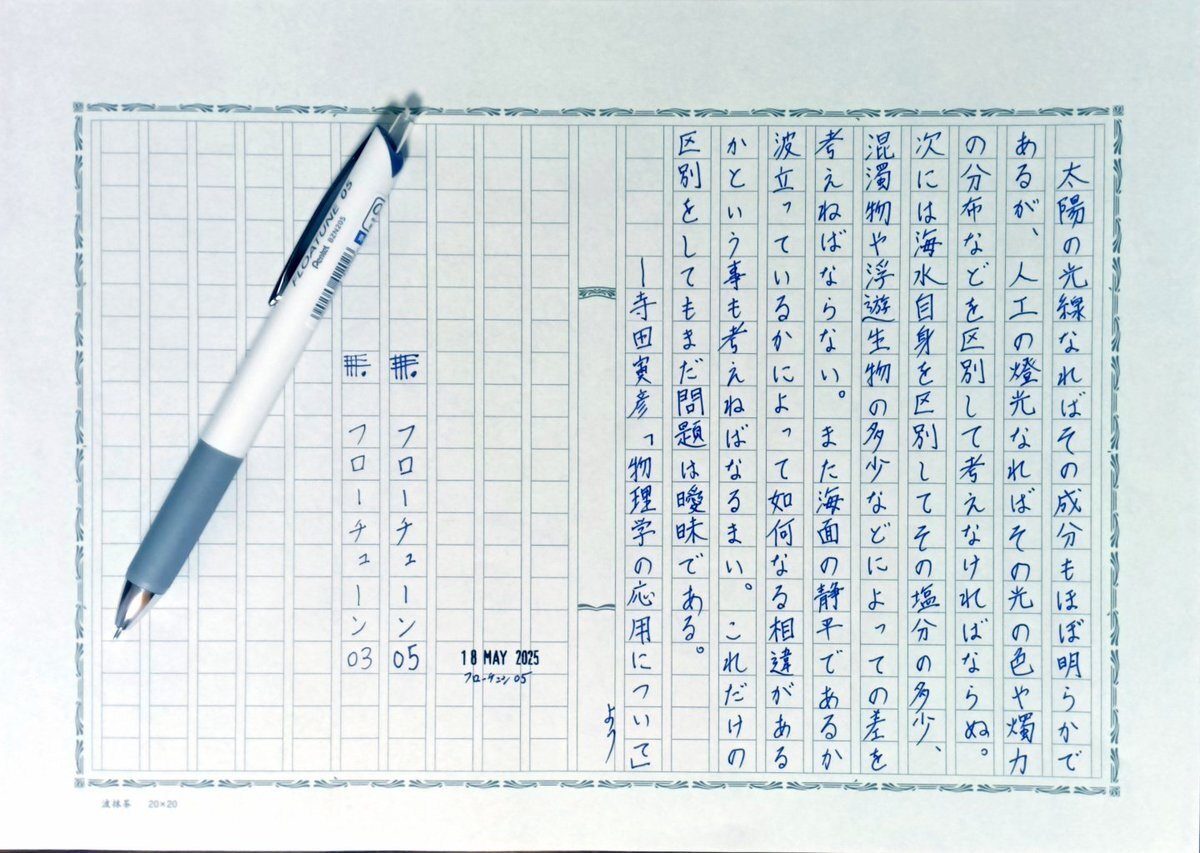 太陽の光線なればその成分もほぼ明らかで
あるが、人工の燈光なればその光の色や燭力
の分布などを区別して考えなければならぬ。
次には海水自身を区別してその塩分の多少、
混濁物や浮遊生物の多少などによっての差を
考えねばならない。また海面の静平であるか
波立っているかによって如何なる相違がある
かという事も考えねばなるまい。これだけの
区別をしてもまだ問題は曖昧である。
ー寺田寅彦「物理学の応用について」
より
18 MAY 2025
フローチュン05
無 フローチューン05
無 フローチューン03
FLOATUNE 05
Pentel BZN205
波抹茶 20×20